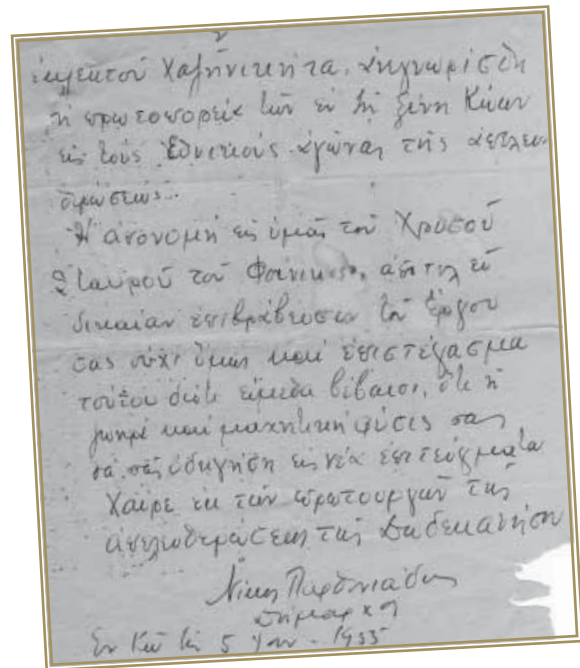 ἐκλεκτοῦ Χατζηνικήτα, ἀνεγνωρίσθη
ἡ πρωτοπορεία τῶν ἐν τῇ ξένῃ Κώων
εἰς τοὺς Ἐθνικοὺς ἀγῶνας τῆς ἀπελευ-
θερώσεως.
Ἡ ἀπονομὴ εἰς ὑμᾶς τοῦ Χρυσοῦ
Σταυροῦ τοῦ Φοίνικος, ἀποτελεῖ
δικαίαν ἐπιβράβευσιν τοῦ ἔργου
σας οὐχὶ ὅμως καὶ ἐπιστέγασμα
τούτου διότι εἴμεθα βέβαιοι, ὅτι ἡ
καὶ μαχητικὴ φύσις σας
θὰ σᾶς ὁδηγήσῃ εἰς νέα ἐπιτεύγματα
Χαῖρε ἐκ τῶν πρωτουργῶν τῆς
ἀπελευθερώσεως τῆς Δωδεκανήσου
Δήμαρχος
Ἐν Κῷ τῇ 5 1955